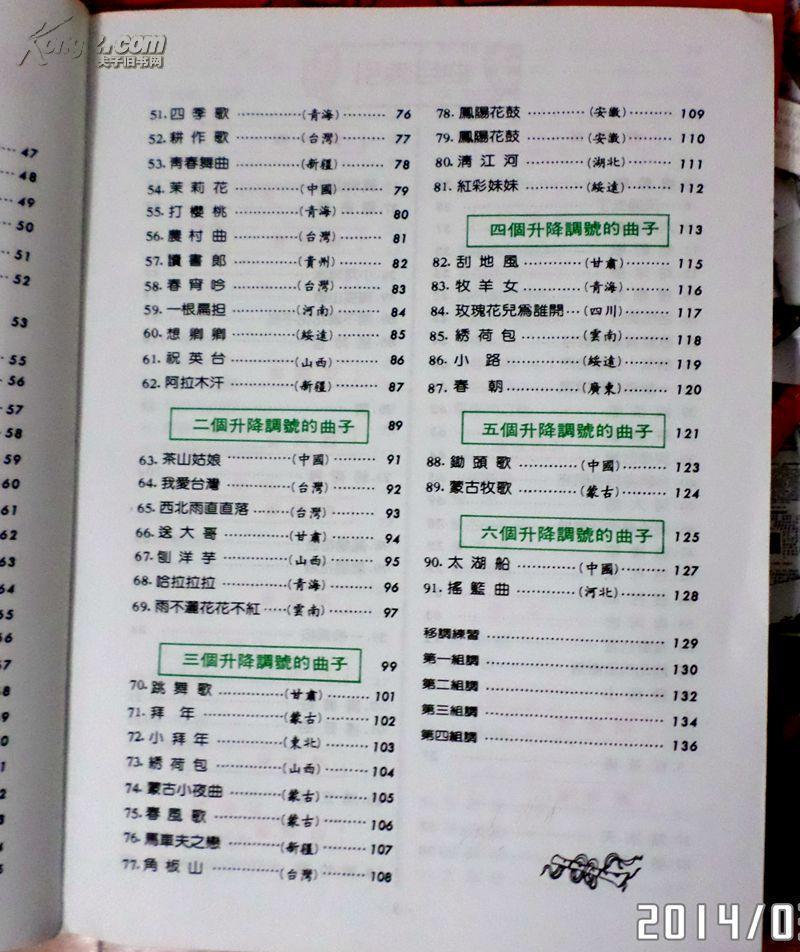 Kongfz.com
孔夫子旧书网
47
48
49
50
51
52
53
55
56
57
58
59
60
61
62
63
64
65
66
67
51. 四季歌 …………… (青海) …… 76
52. 耕作歌 …………… (台灣) …… 77
53. 青春舞曲 ………… (新疆) …… 78
54. 茉莉花 …………… (中國) …… 79
55. 打櫻桃 …………… (青海) …… 80
56. 農村曲 …………… (台灣) …… 81
57. 讀書郎 …………… (貴州) …… 82
58. 春宵吟 …………… (台灣) …… 83
59. 一根扁担 ………… (河南) …… 84
60. 想卿卿 …………… (綏遠) …… 85
61. 祝英台 …………… (山西) …… 86
62. 阿拉木汗 ………… (新疆) …… 87
二個升降調號的曲子 89
63. 茶山姑娘 ………… (中國) …… 91
64. 我愛台灣 ………… (台灣) …… 92
65. 西北雨直直落 …… (台灣) …… 93
66. 送大哥 …………… (甘肅) …… 94
67. 刨洋芋 …………… (山西) …… 95
68. 哈拉拉拉 ………… (青海) …… 96
69. 雨不灑花花不紅 … (雲南) …… 97
三個升降調號的曲子 99
70. 跳舞歌 …………… (甘肅) …… 101
71. 拜年 ……………… (蒙古) …… 102
72. 小拜年 …………… (東北) …… 103
73. 綉荷包 …………… (山西) …… 104
74. 蒙古小夜曲 ……… (蒙古) …… 105
75. 春風歌 …………… (蒙古) …… 106
76. 馬車夫之戀 ……… (新疆) …… 107
77. 角板山 …………… (台灣) …… 108
78. 鳳陽花鼓 ………… (安徽) …… 109
79. 鳳陽花鼓 ………… (安徽) …… 110
80. 清江河 …………… (湖北) …… 111
81. 紅彩妹妹 ………… (綏遠) …… 112
四個升降調號的曲子 113
82. 刮地風 …………… (甘肅) …… 115
83. 牧羊女 …………… (青海) …… 116
84. 玫瑰花兒爲誰開 … (四川) …… 117
85. 綉荷包 …………… (雲南) …… 118
86. 小路 ……………… (綏遠) …… 119
87. 春朝 ……………… (廣東) …… 120
五個升降調號的曲子 121
88. 鋤頭歌 …………… (中國) …… 123
89. 蒙古牧歌 ………… (蒙古) …… 124
六個升降調號的曲子 125
90. 太湖船 …………… (中國) …… 127
91. 搖籃曲 …………… (河北) …… 128
移調練習 ………………………… 129
第一組調 ………………………… 130
第二組調 ………………………… 132
第三組調 ………………………… 134
第四組調 ………………………… 136
2014/0